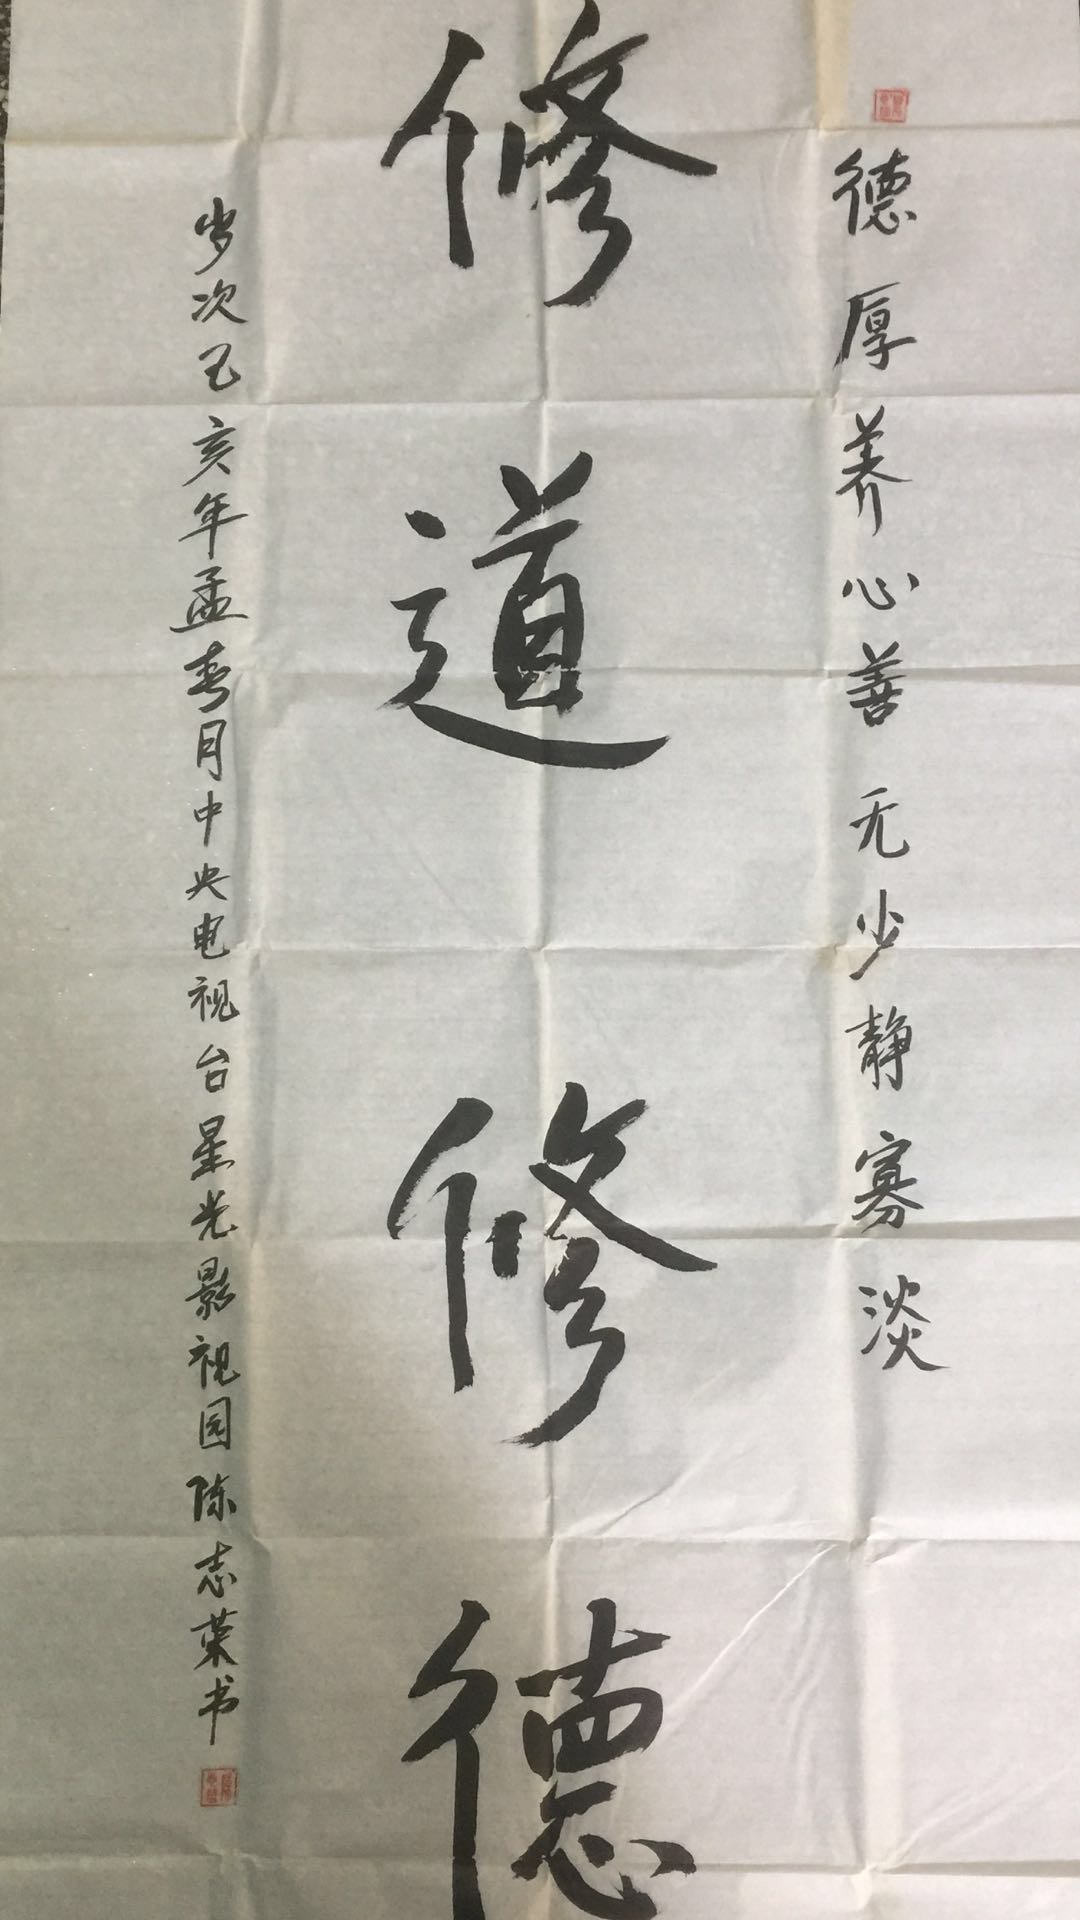 德厚养心善无少静寡淡
修道修德
岁次己亥年孟春月中央电视台星光影视园陈志荣书